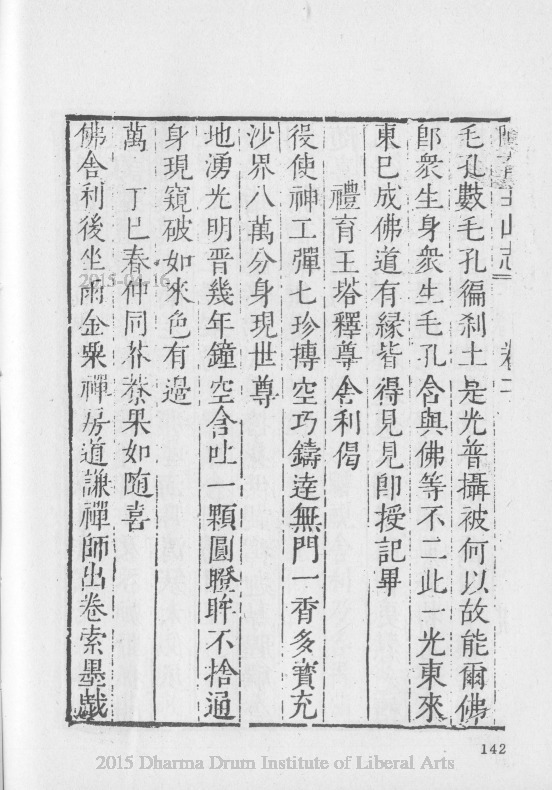 山志 卷二
毛孔數毛孔徧剎土是光普攝被何以故能爾佛
卽衆生身衆生毛孔含與佛等不二此一光東來
東已成佛道有緣皆得見見卽授記畢
禮育王塔釋尊舍利偈
役使神工彈七珍摶空巧鑄達無門一香多寶充
沙界八萬分身現世尊
地湧光明晋幾年鐘空含吐一顆圓瞪眸不捨通
身現窺破如來色有邊
萬 丁巳春仲同茶果如随喜
佛舍利後坐雨金粟禪房道謙禪師出卷索墨戱
142
2015-04-16
2015 Dharma Drum Institute of Liberal Arts